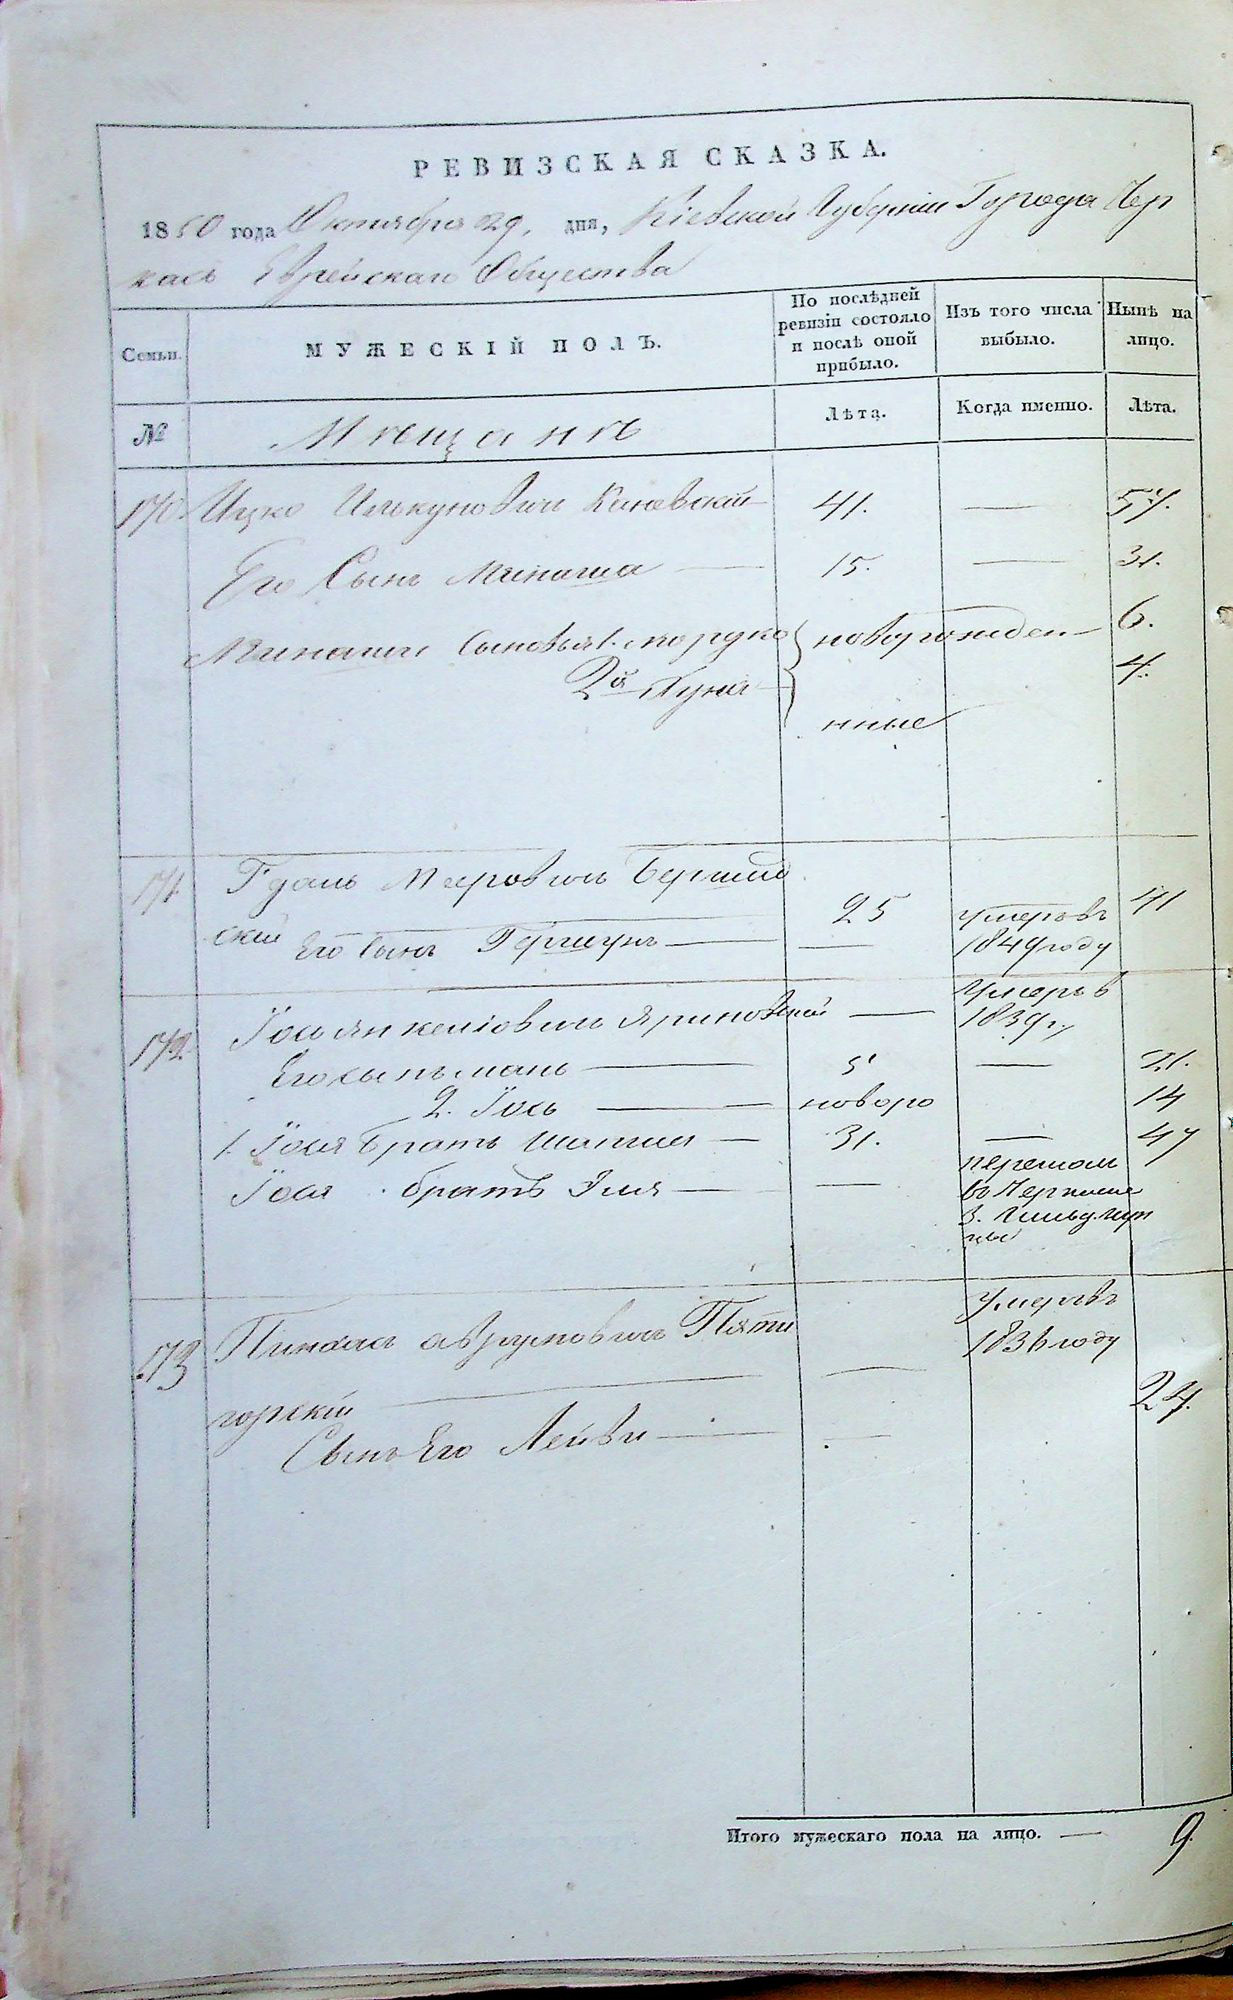 РЕВИЗСКАЯ СКАЗКА.
1850 года Октября 29, дня, Кіевской Губерніи Города Чер
касъ Еврейскаго Общества
Семьи.
МУЖЕСКІЙ ПОЛЪ.
По послѣдней
ревизіи состояло
и послѣ оной
прибыло.
Изъ того числа
выбыло.
Нынѣ на
лицо.
№
Мѣщанѣ
Лѣта.
Когда именно.
Лѣта.
170. Ицко Каневскій 41. — 57.
Его Сынъ Минаша — 15. — 31.
Минаши Сыновья 1. Мордко новорожден 6.
2й Нухим 4.
нные
171. Мееровичъ Бершад
скій 25 умеръ въ 41
Его Сынъ Гершунъ — — 1849 году
172. Іось Янкеліовичъ Яриновскій — Умеръ в
1839 г.
Его сынъ — 5 — 21.
2. Іось — новоро 14
1. Іося братъ — 31. — 47
Іося братъ Эля — —
в Черкаские
3. Гильд. куп
цы
173 Пинхасъ Аврумовичъ Пяти
горскій — — Умеръ въ
1836 году
Сынъ Его Лейви — — 24.
Итого мужескаго пола на лицо. — 9.